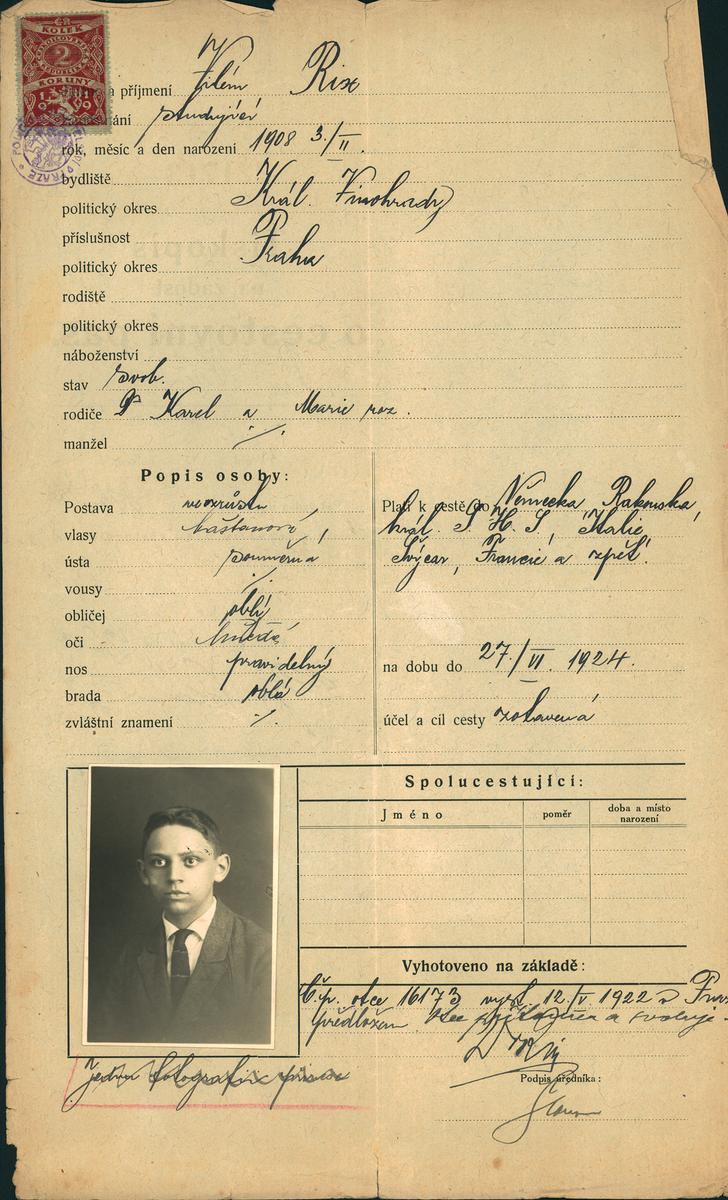 KOLEK
2
KORUNY
1919
a příjmení Vilém Rix
studující
rok, měsíc a den narození 1908 3./II.
bydliště
politický okres Král. Vinohrady
příslušnost
politický okres Praha
rodiště
politický okres
náboženství
stav svob.
rodiče Dr Karel a Marie roz.
manžel ./.
Popis osoby:
Postava
vlasy kaštanové
ústa souměrná
vousy ./.
obličej oblý
oči hnědé
nos pravidelný
brada oblá
zvláštní znamení ./.
Platí k cestě do Německa, Rakouska,
král. S. H. S., Italie,
Švýcar, Francie a zpět.
na dobu do 27./VI. 1924.
účel a cíl cesty zotavená
Spolucestující:
Jméno
poměr
doba a místo narození
Vyhotoveno na základě:
Č.p. otce 16173 vyst. 12./V. 1922
předložen otec přítomen a svoluje
Jedna fotografie
Podpis úředníka: